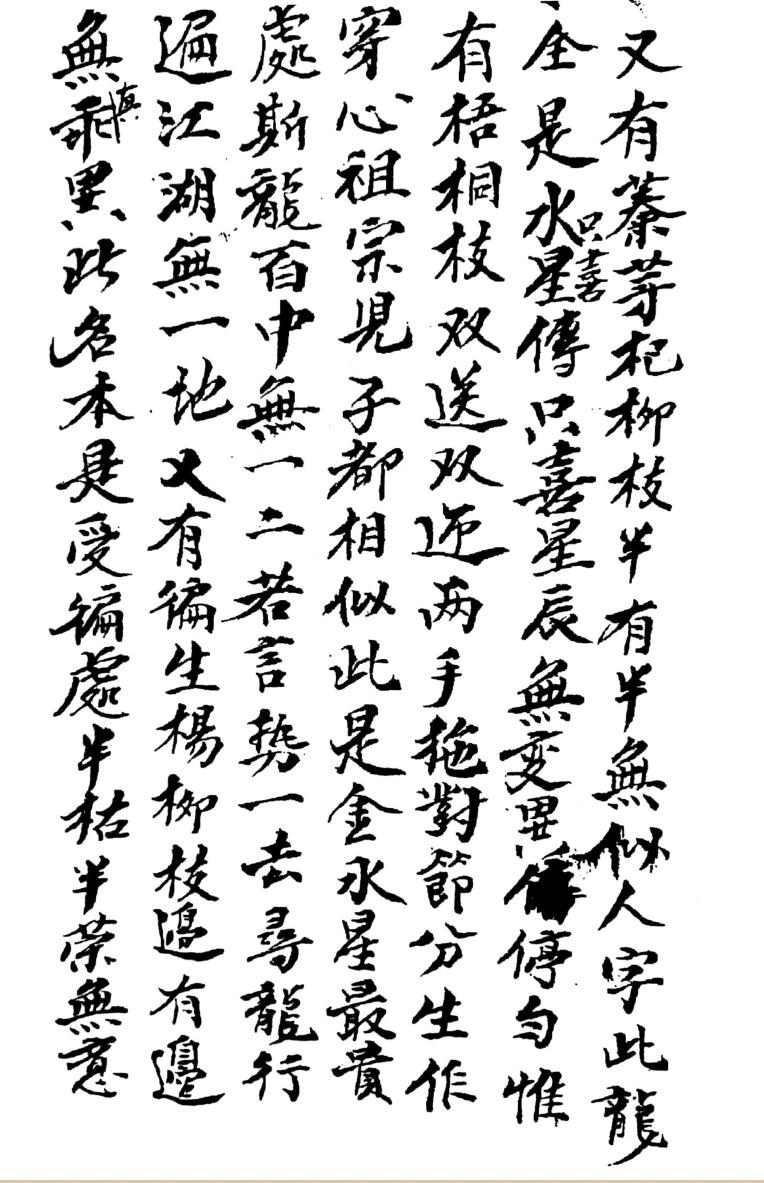 又有蓁芽杞柳枝半有半無似人字此龍
全是水星傳只喜星辰無変異停勻惟
只喜
有梧桐枝双送双迎两手拖對節分生作
穿心祖宗児子都相似此是金水星最貴
處斯龍百中無一二若言势一去尋龍行
遍江湖無一地又有徧生楊柳枝邉有邉
無乖異此名本是受徧處半枯半荣無意
真